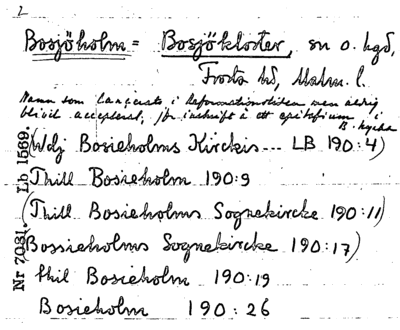 2
Bosjöholm = Bosjökloster, sn o. hgd,
Frosta hd, Malm. l.
Namn som lancerats i Reformationstiden men aldrig
blivit accepterat, jfr inskrift å ett epitafium i
B. kyrka
(Udj Bosieholms Kirckis --- LB 190:4)
Thill Bosieholm 190:9
(Thill Bosieholms Sognekircke 190:11)
(Bossieholms Sognekircke 190:17)
thil Bosieholm 190:19
Bosieholm 190:26
Nr 7031. Lb 1569.